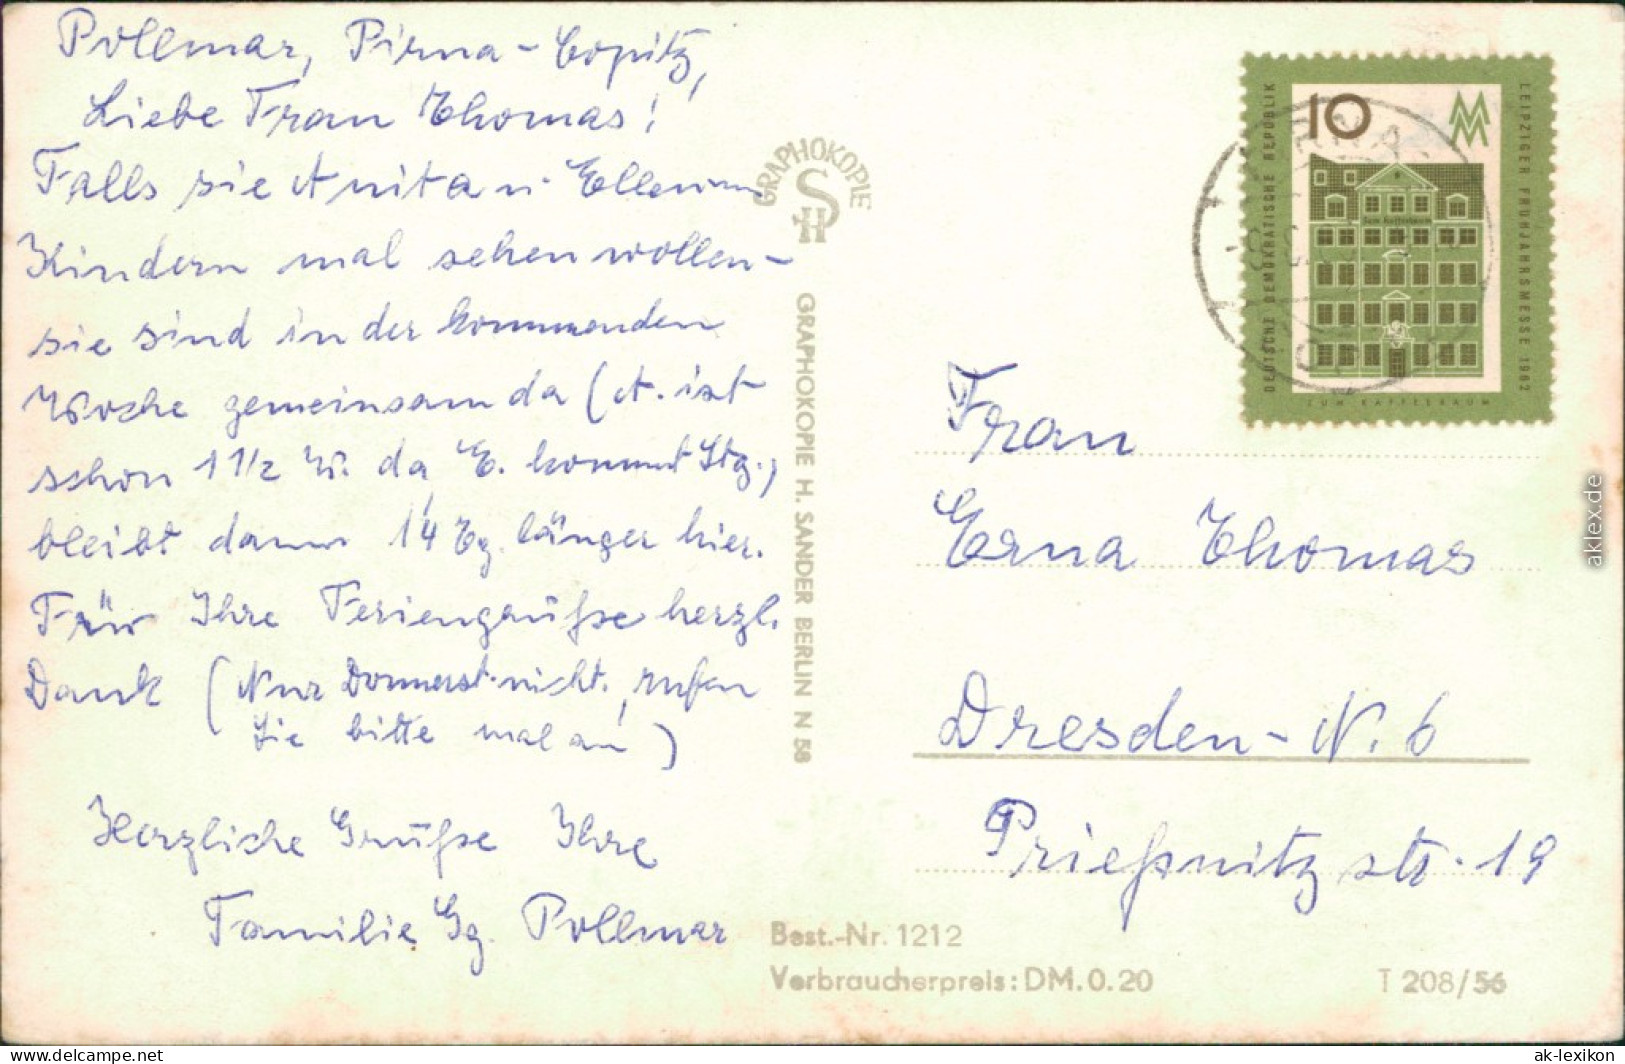 Pollmar, Pirna-Copitz,
Liebe Frau Thomas!
Falls sie Anita u. Ellen m.
Kindern mal sehen wollen -
sie sind in der kommenden
Woche gemeinsam da (A. ist
schon 1 1/2 W. da, E. kommt Stg.,
bleibt dann 14 Tg. länger hier.
Für Ihre Feriengrüße herzl.
Dank (Nur Donnerst. nicht, rufen
Sie bitte mal an)
Herzliche Grüße Ihre
Familie Gg. Pollmar
GRAPHOKOPIE
HS
GRAPHOKOPIE H. SANDER BERLIN N 58
DEUTSCHE DEMOKRATISCHE REPUBLIK
10
MM
LEIPZIGER FRÜHJAHRSMESSE 1962
ZUM KAFFEEBAUM
Frau
Erna Thomas
Dresden-N. 6
Prießnitzstr. 19
Best.-Nr. 1212
Verbraucherpreis: DM. 0.20
T 208/56
aklex.de
www.delcampe.net
ak-lexikon